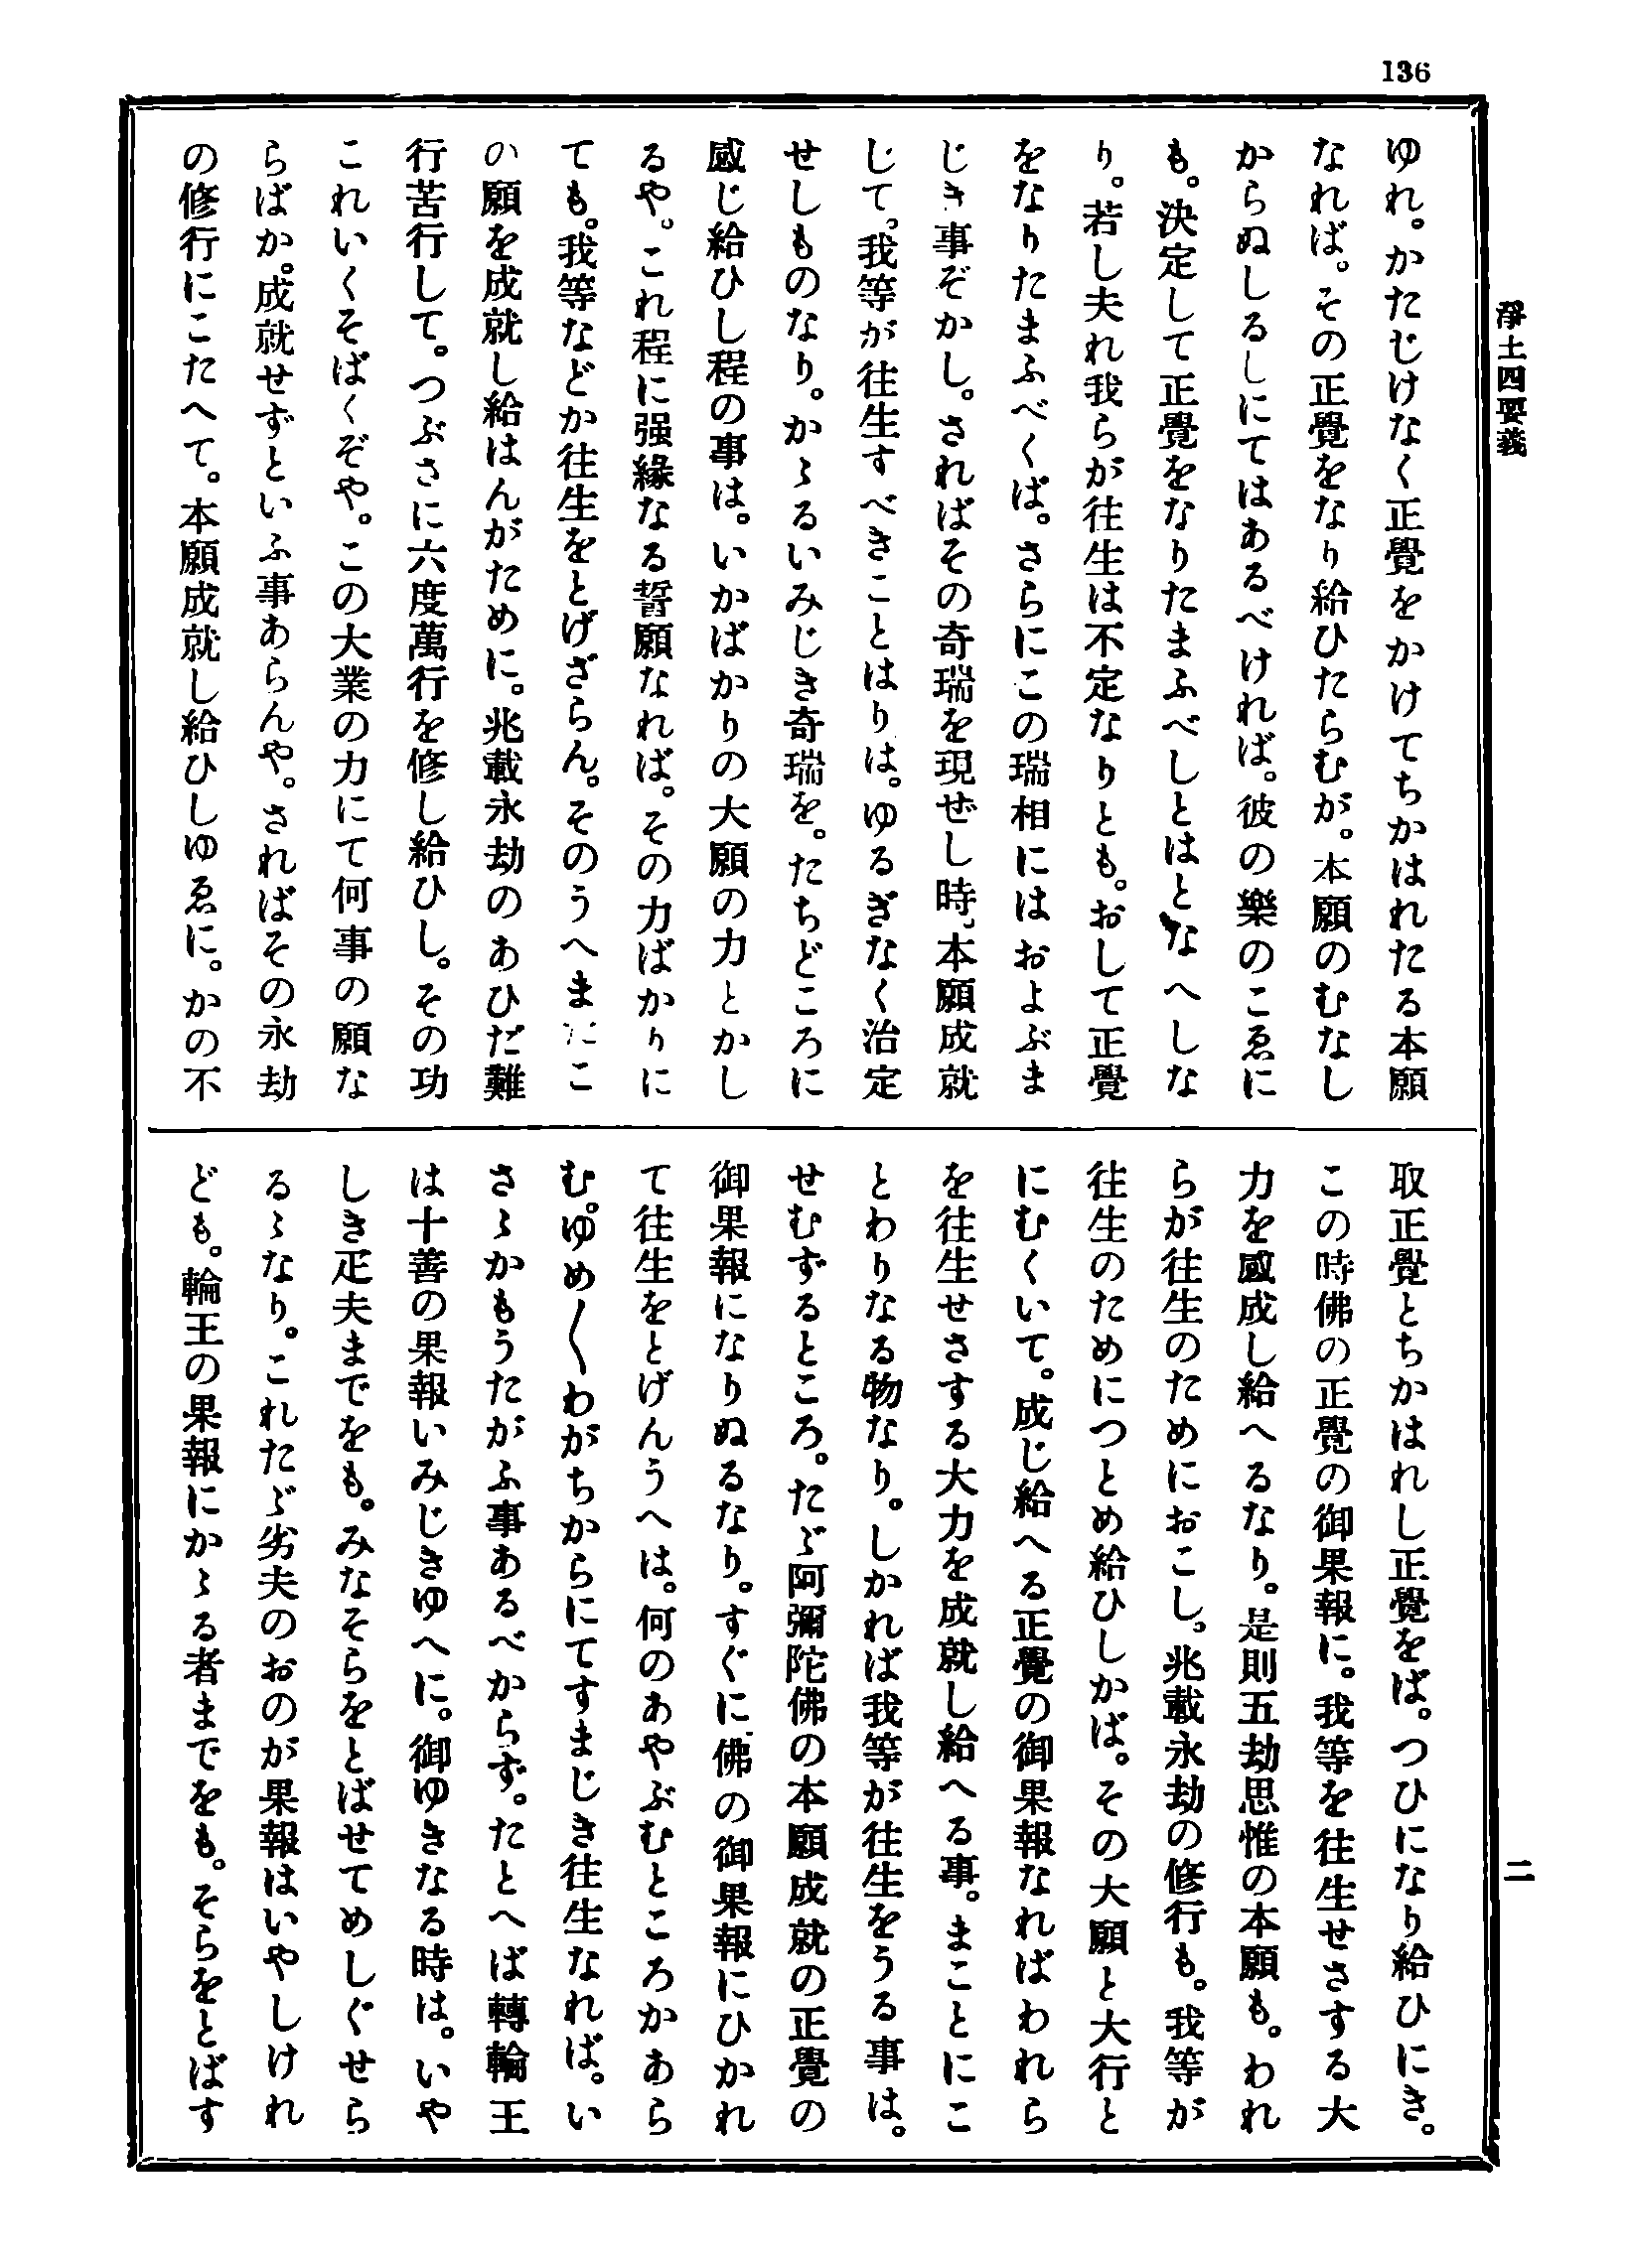 136
淨土四要義
ゆれ。かたじけなく正覺をかけてちかはれたる本願
なれば。その正覺をなり給ひたらむが。本願のむなし
からぬしるしにてはあるべければ。彼の樂のこゑに
も。決定して正覺をなりたまふべしとはとなへしな
り。若し夫れ我らが往生は不定なりとも。おして正覺
をなりたまふべくば。さらにこの瑞相にはおよぶま
じき事ぞかし。さればその奇瑞を現ぜし時。本願成就
じて。我等が往生すべきことはりは。ゆるぎなく治定
せしものなり。かゝるいみじき奇瑞を。たちどころに
感じ給ひし程の事は。いかばかりの大願の力とかし
るや。これ程に强緣なる誓願なれば。その力ばかりに
ても。我等などか往生をとげざらん。そのうへまだこ
の願を成就し給はんがために。兆載永劫のあひだ難
行苦行して。つぶさに六度萬行を修し給ひし。その功
これいくそばくぞや。この大業の力にて何事の願な
らばか。成就せずといふ事あらんや。さればその永劫
の修行にこたへて。本願成就し給ひしゆゑに。かの不
取正覺とちかはれし正覺をば。つひになり給ひにき。
この時佛の正覺の御果報に。我等を往生せさする大
力を感成し給へるなり。是則五劫思惟の本願も。われ
らが往生のためにおこし。兆載永劫の修行も。我等が
往生のためにつとめ給ひしかば。その大願と大行と
にむくいて。成じ給へる正覺の御果報なればわれら
を往生せさする大力を成就し給へる事。まことにこ
とわりなる物なり。しかれば我等が往生をうる事は。
せむずるところ。たゞ阿彌陀佛の本願成就の正覺の
御果報になりぬるなり。すぐに佛の御果報にひかれ
て往生をとげんうへは。何のあやぶむところかあら
む。ゆめ〱わがちからにてすまじき往生なれば。い
さゝかもうたがふ事あるべからず。たとへば轉輪王
は十善の果報いみじきゆへに。御ゆきなる時は。いや
しき疋夫までをも。みなそらをとばせてめしぐせら
るゝなり。これたゞ劣夫のおのが果報はいやしけれ
ども。輪王の果報にかゝる者までをも。そらをとばす
二